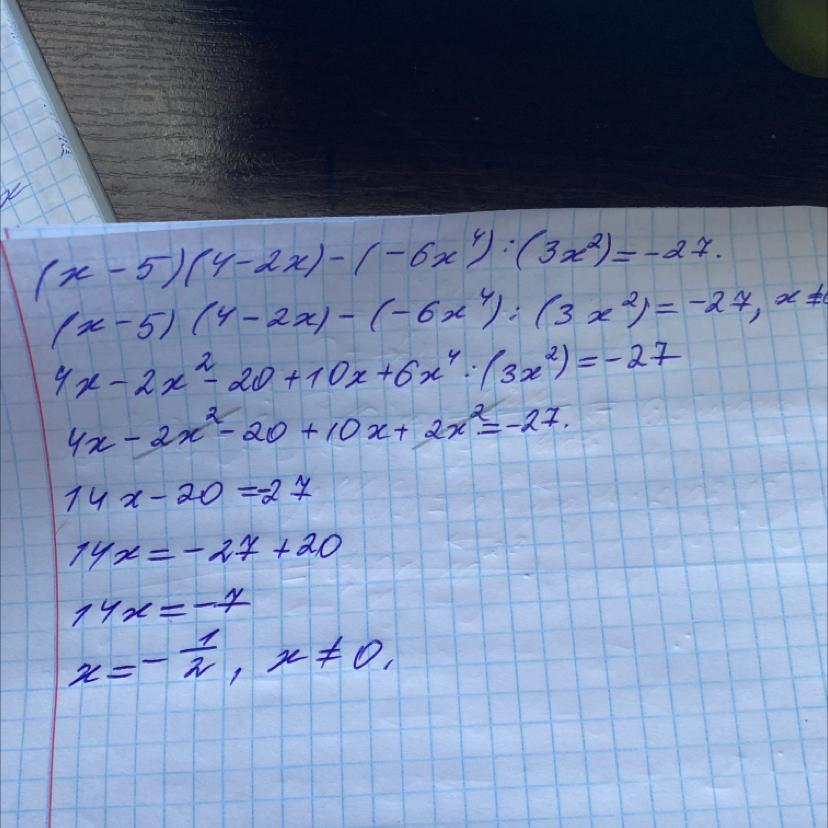 (x - 5)(4 - 2x) - (-6x⁴) : (3x²) = -27.
(x - 5) (4 - 2x) - (-6x⁴) : (3x²) = -27, x ≠
4x - 2x² - 20 + 10x + 6x⁴ : (3x²) = -27
4x - 2x² - 20 + 10x + 2x² = -27.
14x - 20 = -27
14x = -27 + 20
14x = -7
x = - 1/2, x ≠ 0.